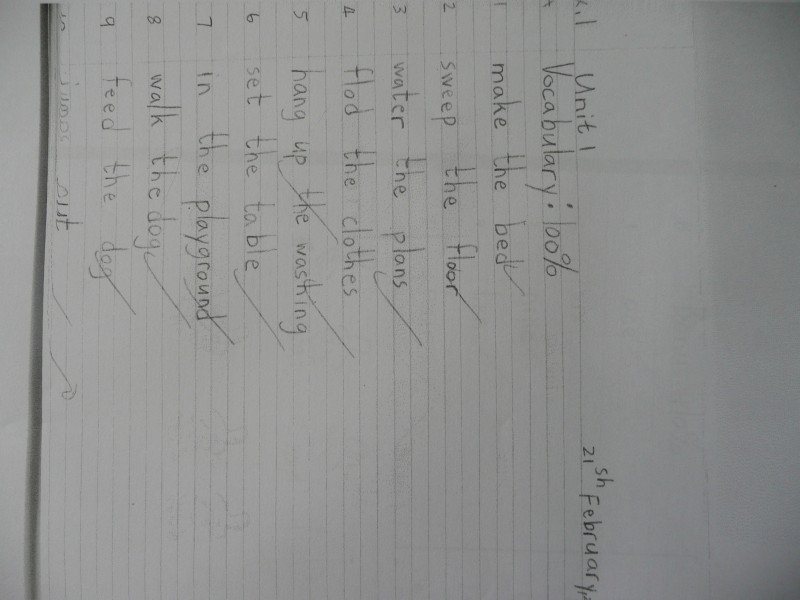 Unit 1
21sh February,
Vocabulary: 100%
1 make the bed
2 sweep the floor
3 water the plans
4 flod the clothes
5 hang up the washing
6 set the table
7 in the playground
8 walk the dog
9 feed the dog
out